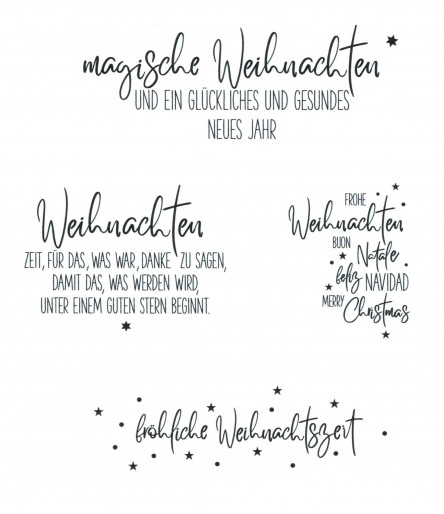 magische Weihnachten
UND EIN GLÜCKLICHES UND GESUNDES
NEUES JAHR
Weihnachten
ZEIT, FÜR DAS, WAS WAR, DANKE ZU SAGEN,
DAMIT DAS, WAS WERDEN WIRD,
UNTER EINEM GUTEN STERN BEGINNT.
FROHE
Weihnachten
BUON
Natale
feliz NAVIDAD
MERRY
Christmas
fröhliche Weihnachtszeit